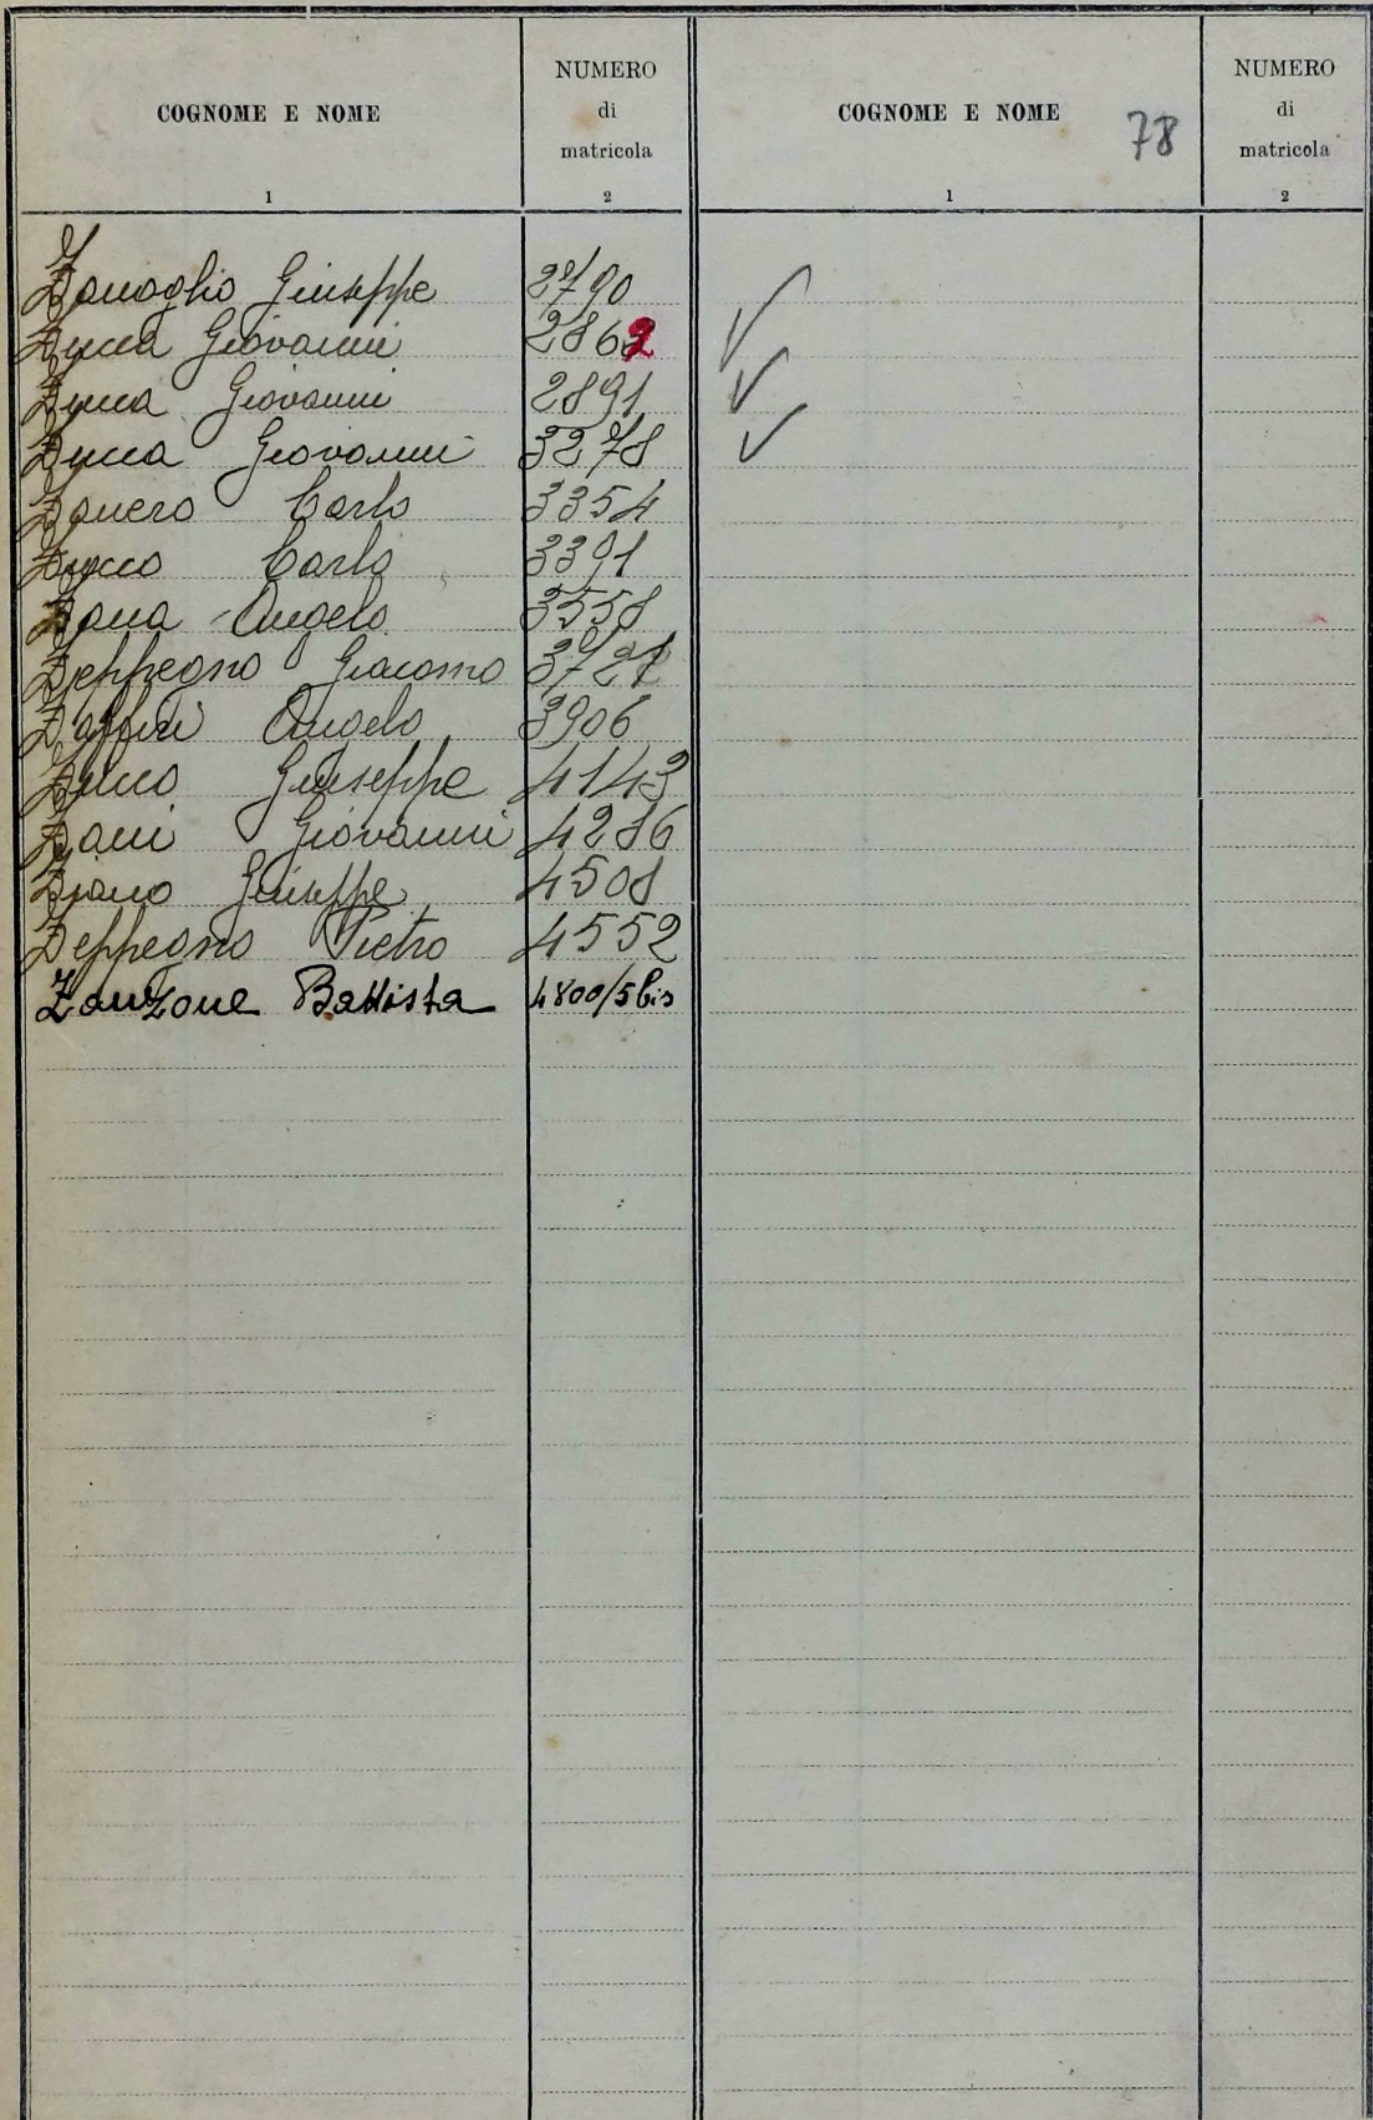 COGNOME E NOME
NUMERO
di
matricola
COGNOME E NOME
78
NUMERO
di
matricola
1
2
1
2
Zanoglio Giuseppe 2790
Zucca Giovanni 2862
Zucca Giovanni 2891
Zucca Giovanni 3278
Zanero Carlo 3354
Zucco Carlo 3391
Zana Angelo 3558
Zeppegno Giacomo
Zaffiri Angelo 3906
Zucco Giuseppe 4143
Zani Giovanni 4286
Ziano Giuseppe 4508
Zeppegno Pietro 4552
Zanzone Battista 4800/5 bis